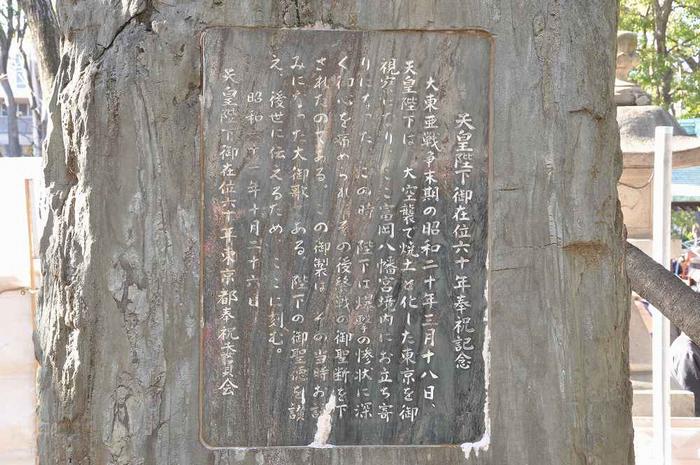 天皇陛下御在位六十年奉祝記念
大東亜戦争末期の昭和二十年三月十八日、
天皇陛下は、大空襲で焼土と化した東京を御
視察になり、ここ富岡八幡宮境内にお立ち寄
りになった。この時、陛下は爆撃の惨状に深
く御心を痛めつられ、その後終戦の御聖断を下
されたのである。この御製は、その当時お詠
みになった大御歌である。陛下の御聖徳を讃
え、後世に伝えるため、ここに刻む。
昭和六十二年十月二十六日
天皇陛下御在位六十年東京都奉祝委員会